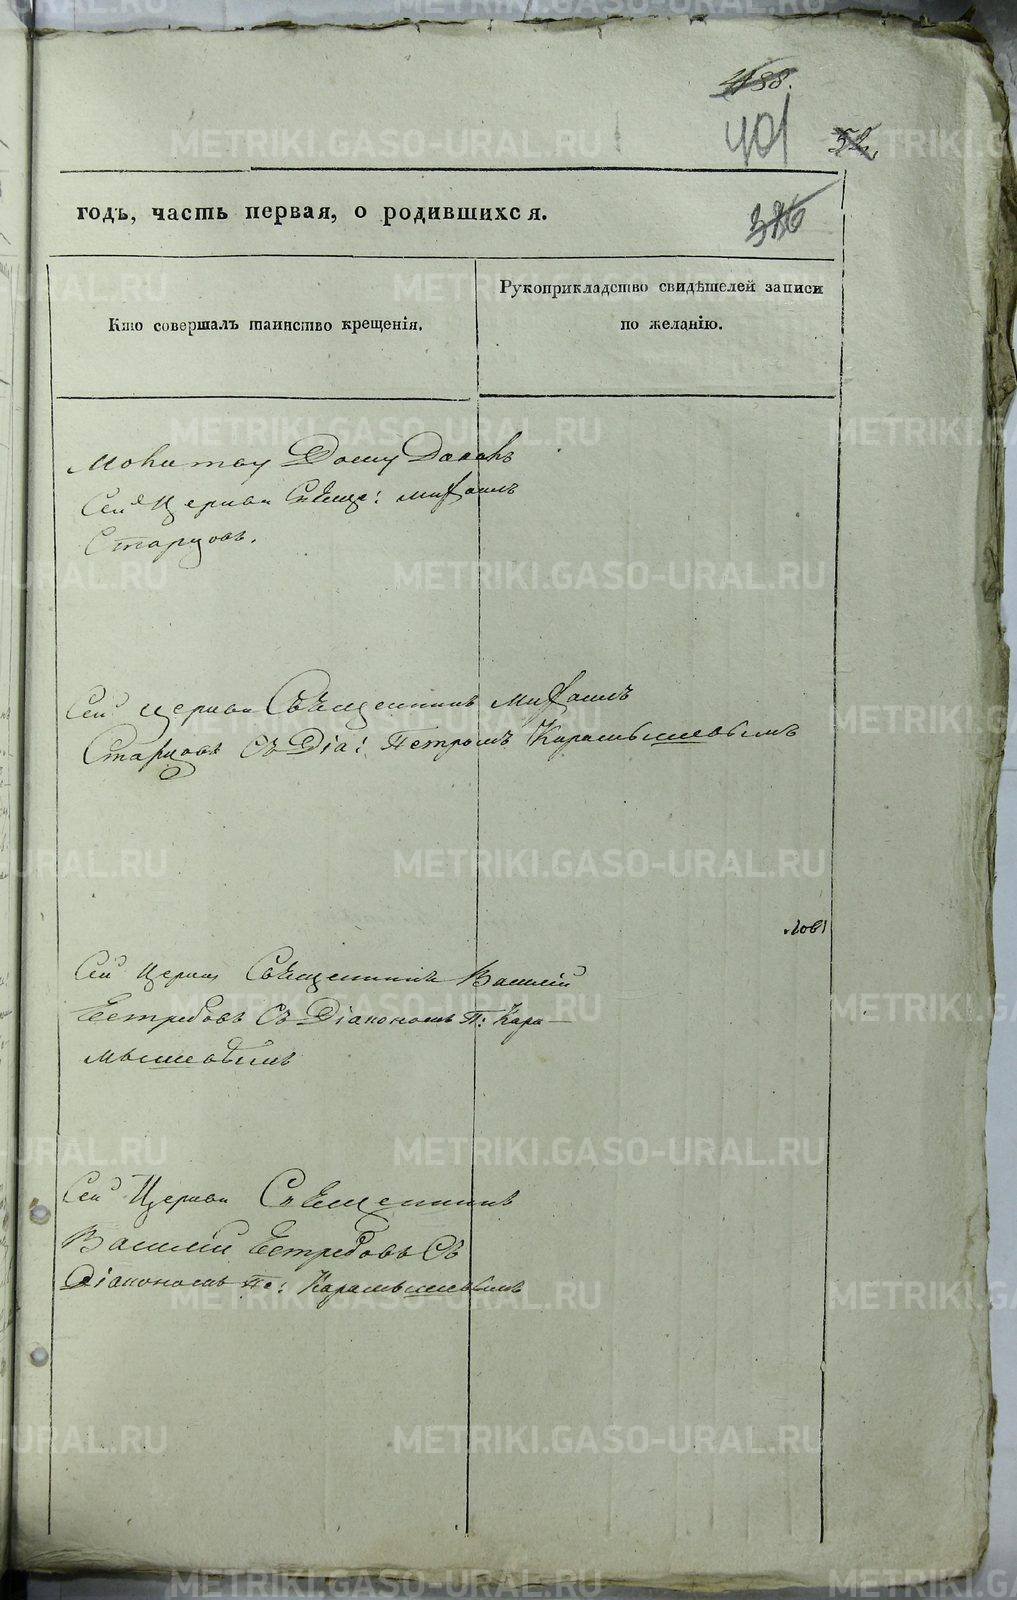 488.
401
52.
376
годъ, часть первая, о родившихся.
Кто совершалъ таинство крещенія.
Рукоприкладство свидѣтелей записи
по желанію.
Молитву Дому Давалъ
Сея Церкви Свящ: Михаилъ
Старцовъ.
Сей Церкви Священникъ Михаилъ
Старцовъ Съ Діа: Петромъ Карамышевымъ
Сей Церкви Священникъ Василій
Естребовъ Съ Діакономъ П: Кара-
мышевымъ
Сей Церкви Священникъ
Василій Естребовъ Съ
Діакономъ Пе: Карамышевымъ
METRIKI.GASO-URAL.RU